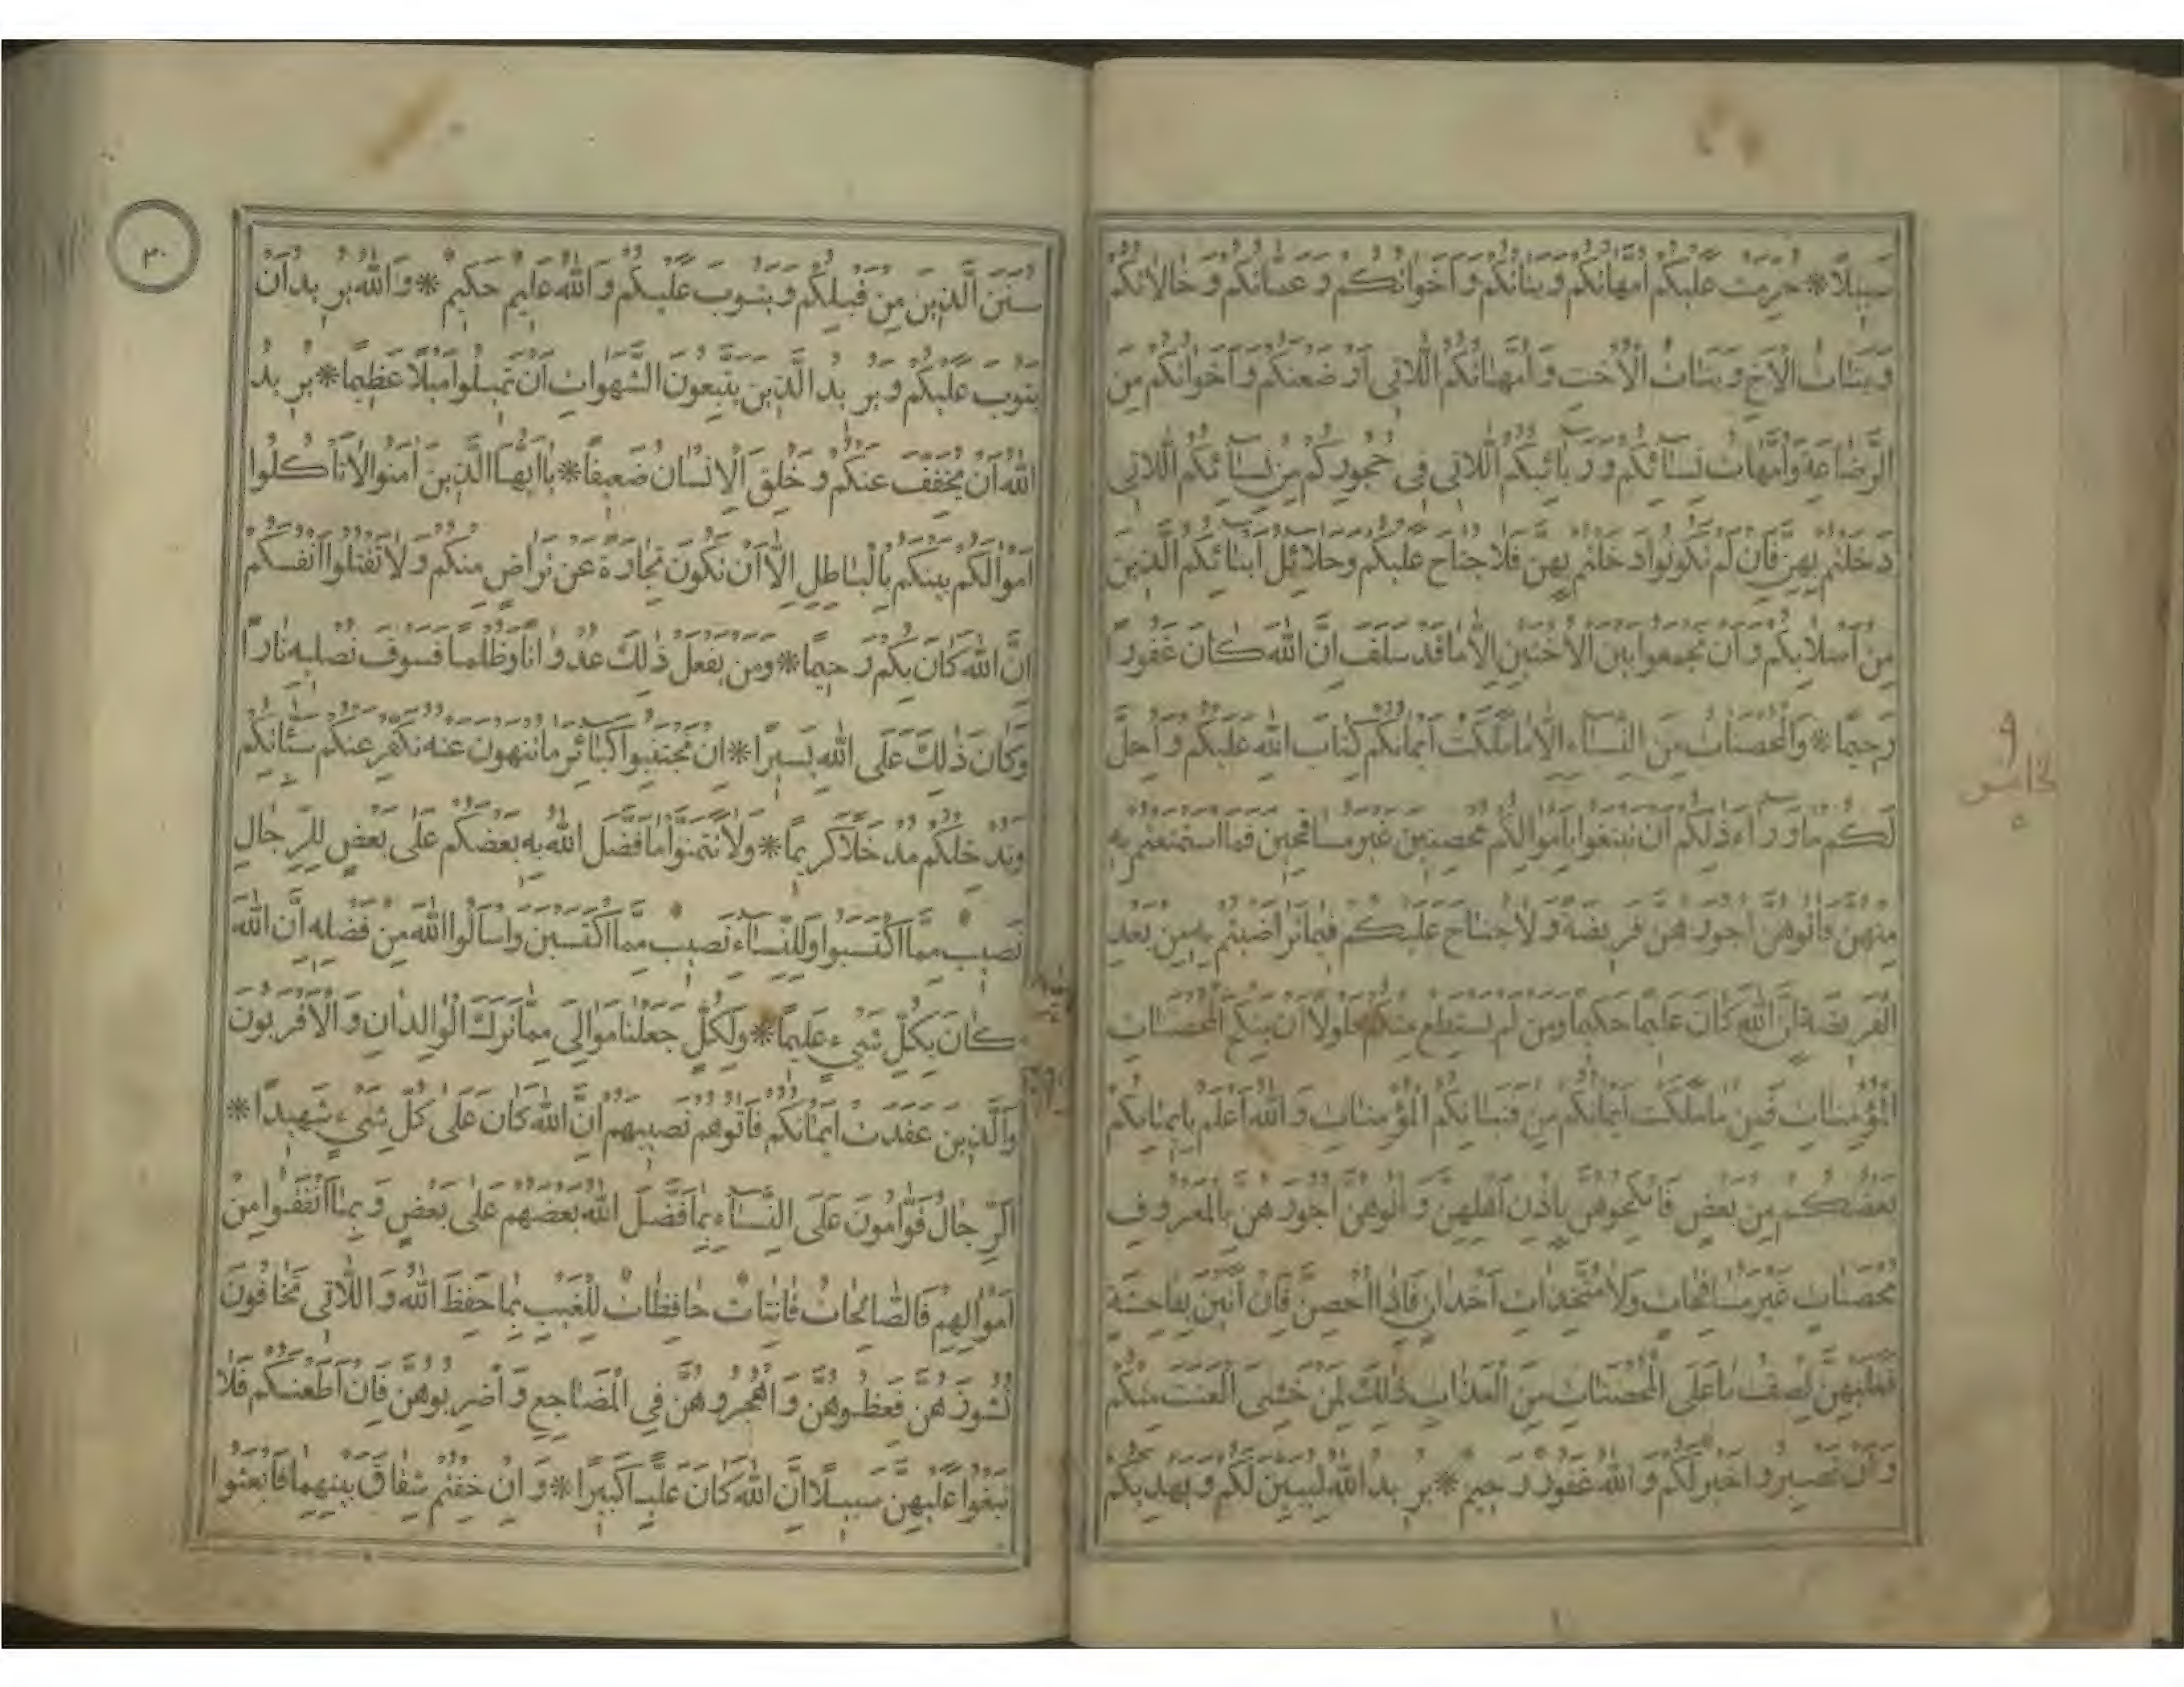 سَبِيلًا * حُرِّمَتْ عَلَيْكُمْ أُمَّهَاتُكُمْ وَبَنَاتُكُمْ وَأَخَوَاتُكُمْ وَعَمَّاتُكُمْ وَخَالَاتُكُمْ
وَبَنَاتُ الْأَخِ وَبَنَاتُ الْأُخْتِ وَأُمَّهَاتُكُمُ اللَّاتِي أَرْضَعْنَكُمْ وَأَخَوَاتُكُمْ مِنَ
الرَّضَاعَةِ وَأُمَّهَاتُ نِسَائِكُمْ وَرَبَائِبُكُمُ اللَّاتِي فِي حُجُورِكُمْ مِنْ نِسَائِكُمُ اللَّاتِي
دَخَلْتُمْ بِهِنَّ فَإِنْ لَمْ تَكُونُوا دَخَلْتُمْ بِهِنَّ فَلَا جُنَاحَ عَلَيْكُمْ وَحَلَائِلُ أَبْنَائِكُمُ الَّذِينَ
مِنْ أَصْلَابِكُمْ وَأَنْ تَجْمَعُوا بَيْنَ الْأُخْتَيْنِ إِلَّا مَا قَدْ سَلَفَ إِنَّ اللَّهَ كَانَ غَفُورًا
رَحِيمًا * وَالْمُحْصَنَاتُ مِنَ النِّسَاءِ إِلَّا مَا مَلَكَتْ أَيْمَانُكُمْ كِتَابَ اللَّهِ عَلَيْكُمْ وَأُحِلَّ
لَكُمْ مَا وَرَاءَ ذَلِكُمْ أَنْ تَبْتَغُوا بِأَمْوَالِكُمْ مُحْصِنِينَ غَيْرَ مُسَافِحِينَ فَمَا اسْتَمْتَعْتُمْ بِهِ
مِنْهُنَّ فَآتُوهُنَّ أُجُورَهُنَّ فَرِيضَةً وَلَا جُنَاحَ عَلَيْكُمْ فِيمَا تَرَاضَيْتُمْ بِهِ مِنْ بَعْدِ
الْفَرِيضَةِ إِنَّ اللَّهَ كَانَ عَلِيمًا حَكِيمًا وَمَنْ لَمْ يَسْتَطِعْ مِنْكُمْ طَوْلًا أَنْ يَنْكِحَ الْمُحْصَنَاتِ
الْمُؤْمِنَاتِ فَمِنْ مَا مَلَكَتْ أَيْمَانُكُمْ مِنْ فَتَيَاتِكُمُ الْمُؤْمِنَاتِ وَاللَّهُ أَعْلَمُ بِإِيمَانِكُمْ
بَعْضُكُمْ مِنْ بَعْضٍ فَانْكِحُوهُنَّ بِإِذْنِ أَهْلِهِنَّ وَآتُوهُنَّ أُجُورَهُنَّ بِالْمَعْرُوفِ
مُحْصَنَاتٍ غَيْرَ مُسَافِحَاتٍ وَلَا مُتَّخِذَاتِ أَخْدَانٍ فَإِذَا أُحْصِنَّ فَإِنْ أَتَيْنَ بِفَاحِشَةٍ
فَعَلَيْهِنَّ نِصْفُ مَا عَلَى الْمُحْصَنَاتِ مِنَ الْعَذَابِ ذَلِكَ لِمَنْ خَشِيَ الْعَنَتَ مِنْكُمْ
وَأَنْ تَصْبِرُوا خَيْرٌ لَكُمْ وَاللَّهُ غَفُورٌ رَحِيمٌ * يُرِيدُ اللَّهُ لِيُبَيِّنَ لَكُمْ وَيَهْدِيَكُمْ
٣٠
سُنَنَ الَّذِينَ مِنْ قَبْلِكُمْ وَيَتُوبَ عَلَيْكُمْ وَاللَّهُ عَلِيمٌ حَكِيمٌ * وَاللَّهُ يُرِيدُ أَنْ
يَتُوبَ عَلَيْكُمْ وَيُرِيدُ الَّذِينَ يَتَّبِعُونَ الشَّهَوَاتِ أَنْ تَمِيلُوا مَيْلًا عَظِيمًا * يُرِيدُ
اللَّهُ أَنْ يُخَفِّفَ عَنْكُمْ وَخُلِقَ الْإِنْسَانُ ضَعِيفًا * يَا أَيُّهَا الَّذِينَ آمَنُوا لَا تَأْكُلُوا
أَمْوَالَكُمْ بَيْنَكُمْ بِالْبَاطِلِ إِلَّا أَنْ تَكُونَ تِجَارَةً عَنْ تَرَاضٍ مِنْكُمْ وَلَا تَقْتُلُوا أَنْفُسَكُمْ
إِنَّ اللَّهَ كَانَ بِكُمْ رَحِيمًا * وَمَنْ يَفْعَلْ ذَلِكَ عُدْوَانًا وَظُلْمًا فَسَوْفَ نُصْلِيهِ نَارًا
وَكَانَ ذَلِكَ عَلَى اللَّهِ يَسِيرًا * إِنْ تَجْتَنِبُوا كَبَائِرَ مَا تُنْهَوْنَ عَنْهُ نُكَفِّرْ عَنْكُمْ سَيِّئَاتِكُمْ
وَنُدْخِلْكُمْ مُدْخَلًا كَرِيمًا * وَلَا تَتَمَنَّوْا مَا فَضَّلَ اللَّهُ بِهِ بَعْضَكُمْ عَلَى بَعْضٍ لِلرِّجَالِ
نَصِيبٌ مِمَّا اكْتَسَبُوا وَلِلنِّسَاءِ نَصِيبٌ مِمَّا اكْتَسَبْنَ وَاسْأَلُوا اللَّهَ مِنْ فَضْلِهِ إِنَّ اللَّهَ
كَانَ بِكُلِّ شَيْءٍ عَلِيمًا * وَلِكُلٍّ جَعَلْنَا مَوَالِيَ مِمَّا تَرَكَ الْوَالِدَانِ وَالْأَقْرَبُونَ
وَالَّذِينَ عَقَدَتْ أَيْمَانُكُمْ فَآتُوهُمْ نَصِيبَهُمْ إِنَّ اللَّهَ كَانَ عَلَى كُلِّ شَيْءٍ شَهِيدًا *
الرِّجَالُ قَوَّامُونَ عَلَى النِّسَاءِ بِمَا فَضَّلَ اللَّهُ بَعْضَهُمْ عَلَى بَعْضٍ وَبِمَا أَنْفَقُوا مِنْ
أَمْوَالِهِمْ فَالصَّالِحَاتُ قَانِتَاتٌ حَافِظَاتٌ لِلْغَيْبِ بِمَا حَفِظَ اللَّهُ وَاللَّاتِي تَخَافُونَ
نُشُوزَهُنَّ فَعِظُوهُنَّ وَاهْجُرُوهُنَّ فِي الْمَضَاجِعِ وَاضْرِبُوهُنَّ فَإِنْ أَطَعْنَكُمْ فَلَا
تَبْغُوا عَلَيْهِنَّ سَبِيلًا إِنَّ اللَّهَ كَانَ عَلِيًّا كَبِيرًا * وَإِنْ خِفْتُمْ شِقَاقَ بَيْنِهِمَا فَابْعَثُوا